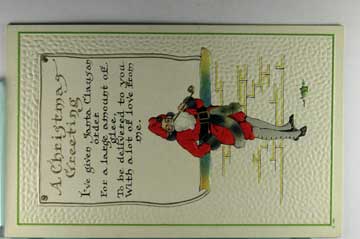 A Christmas
Greeting
I've given Santa Clausan
order
For a large amount of
glee,
To be delivered to you
With a lot of love from
me.